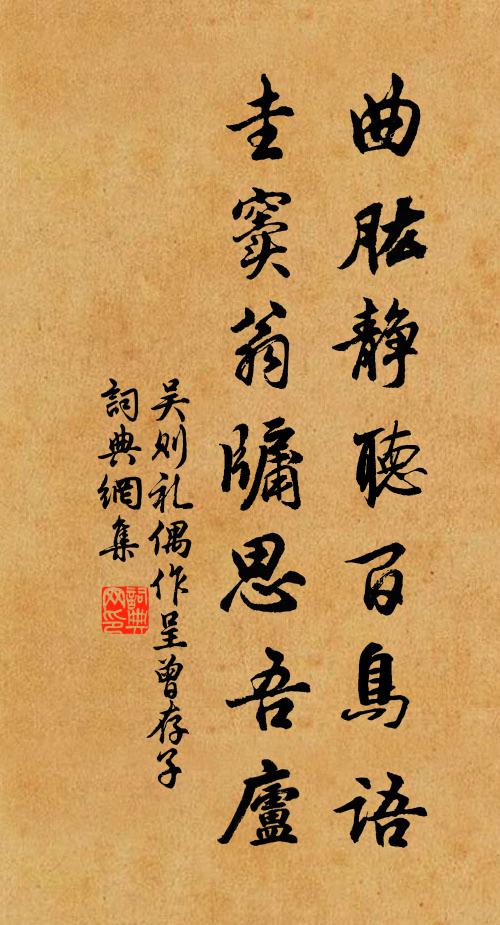 曲肱静聽百鳥语
圭窦翁牖思吾廬
吴则礼偶作呈曾存子
詞典網集
詞典网印